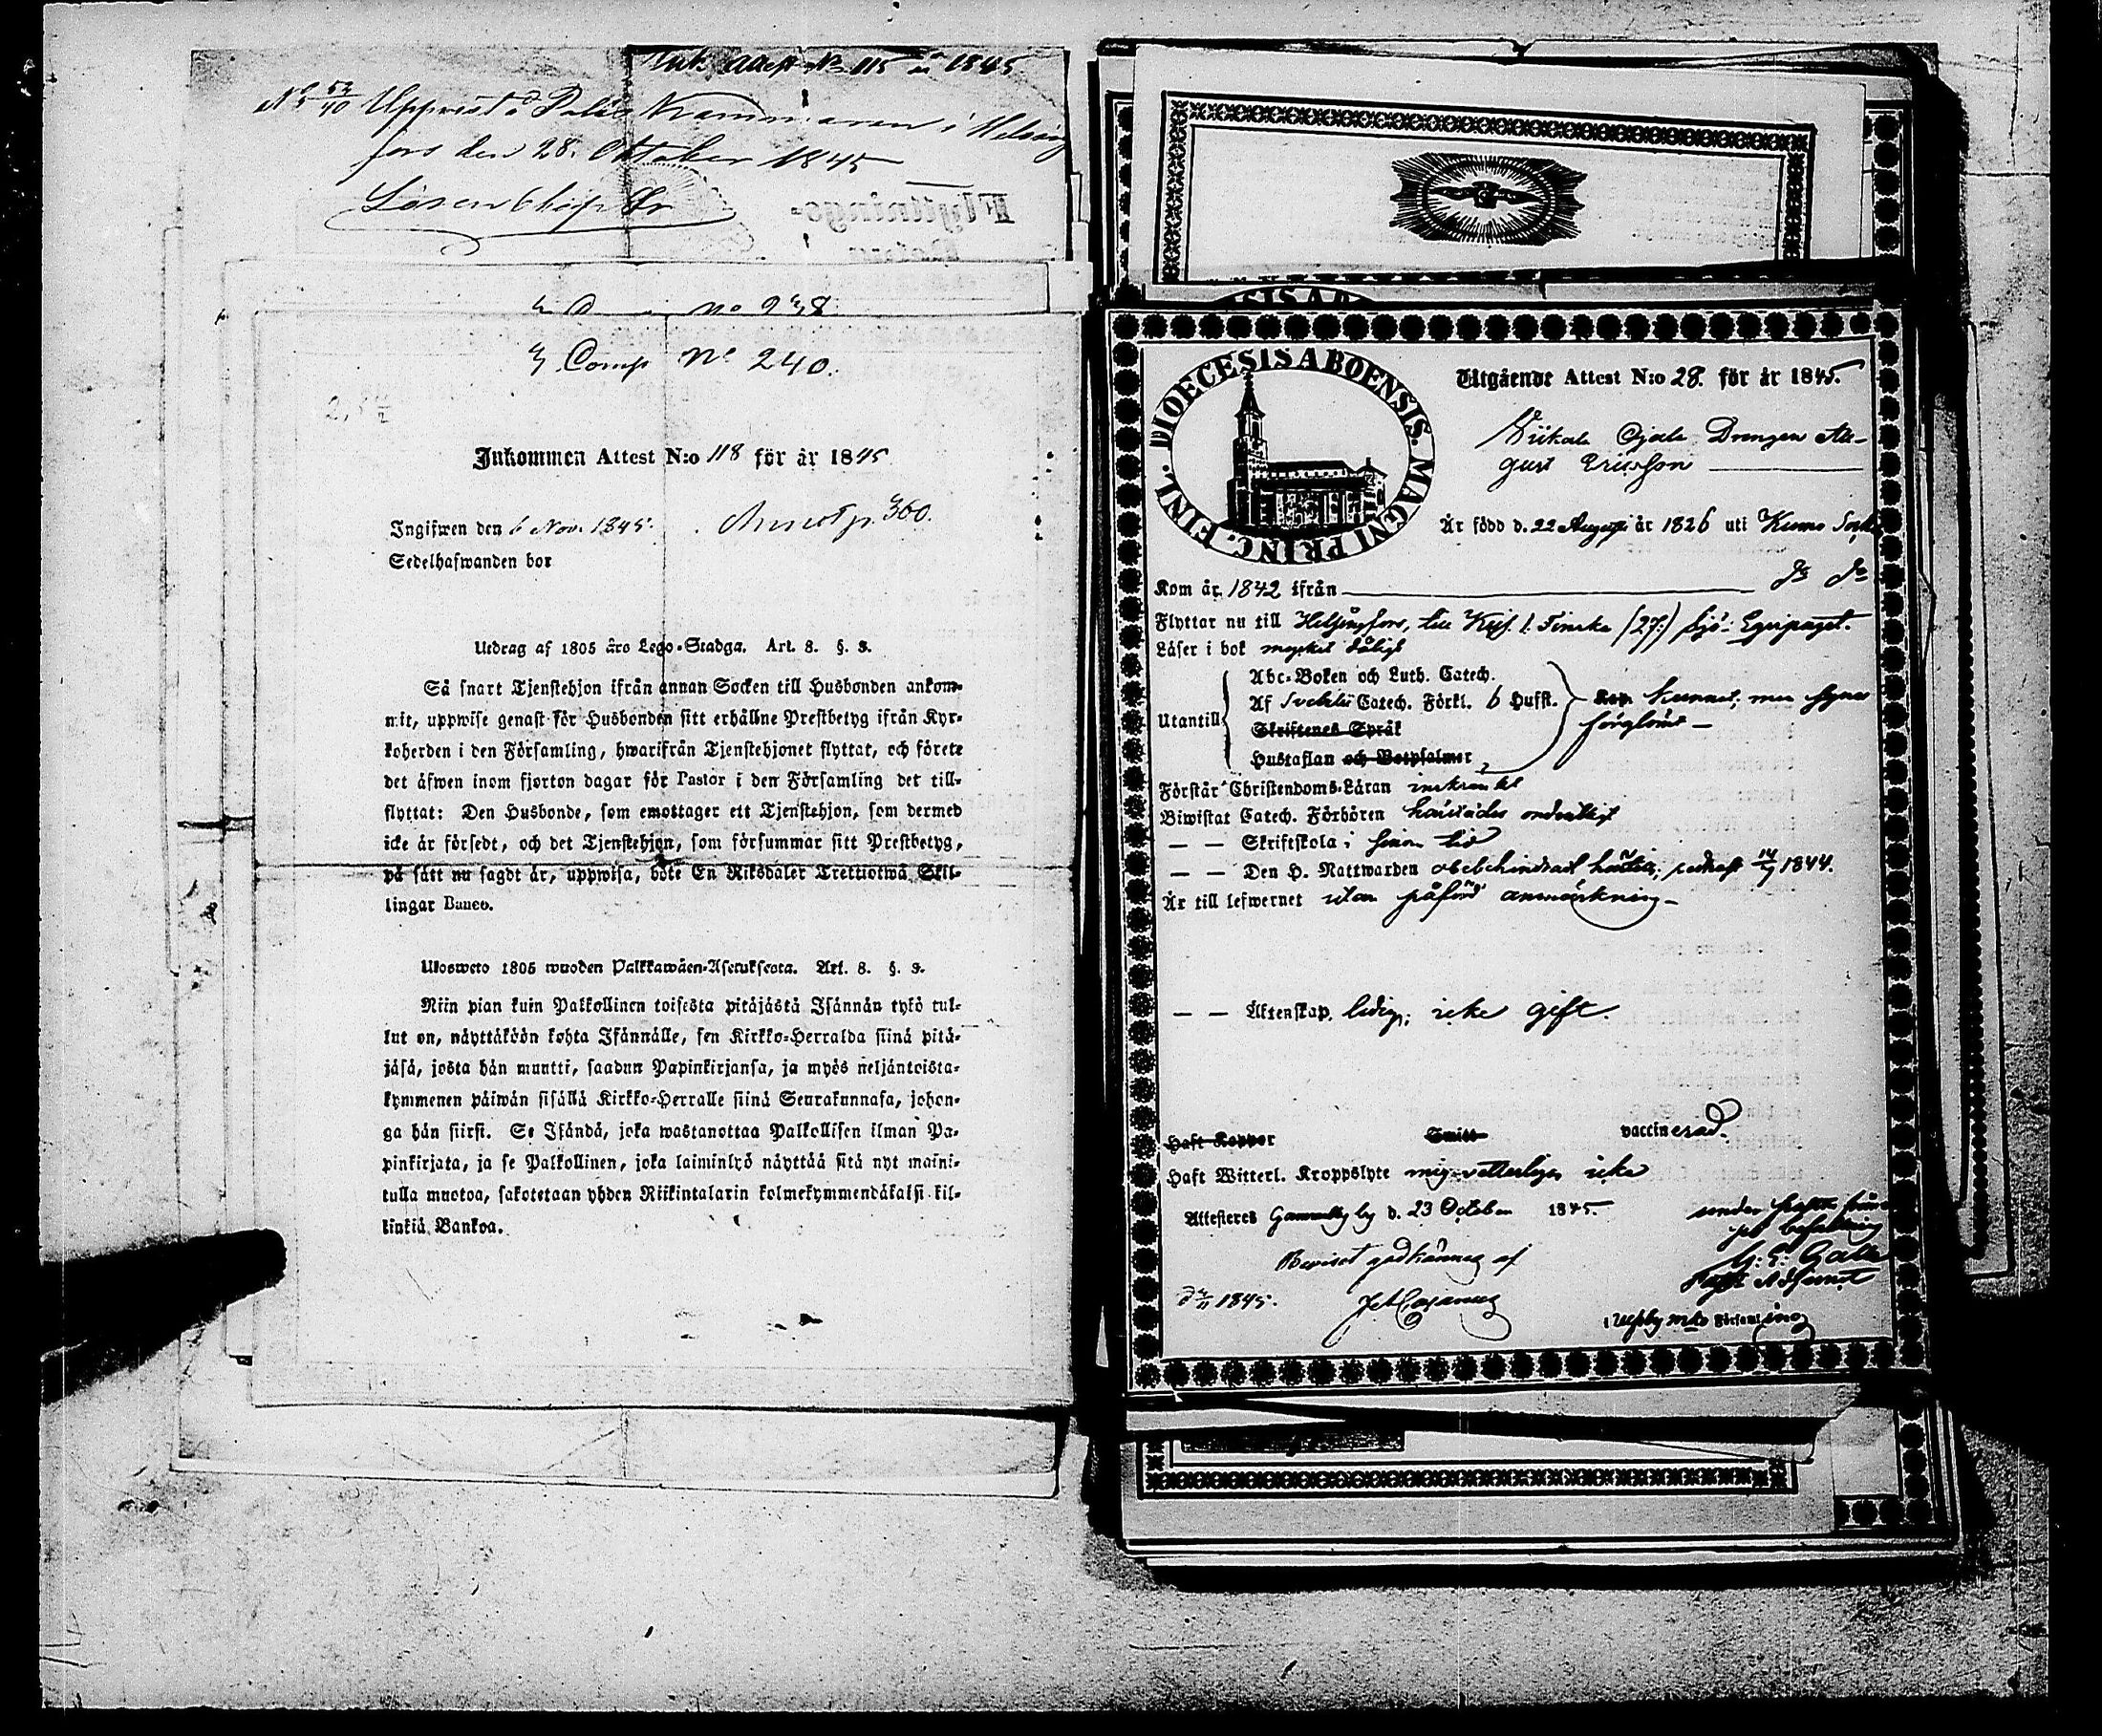 Ink. Attest No 115 år 1845
Uppvist å Polis Kammaren i Helsing
fors den 28. Oktober 1845
Flyttnings-
No 238.
4 Comp No 240.
Inkommen Attest N:o 118 för år 1845
Ingifwen den 6 Nov. 1845. Annot p. 360.
Sedelhafwanden bor
Utdrag af 1805 års Lego-Stadga. Art. 8. §. 3.
Så snart Tjenstehjon ifrån annan Socken till Husbonden ankom-
mit, uppwise genast för Husbonden sitt erhållne Prestbetyg ifrån Kyr-
koherden i den Församling, hwarifrån Tjenstehjonet flyttat, och förete
det äfwen inom fjorton dagar för Pastor i den Församling det till-
flyttat: Den Husbonde, som emottager ett Tjenstehjon, som dermed
icke är försedt, och det Tjenstehjon, som försummar sitt Prestbetyg,
på sätt nu sagdt är, uppwisa, böte En Riksdaler Trettiotwå Skil-
lingar Banco.
Ulosweto 1805 wuoden Palkkawäen-Asetuksesta. Art. 8. §. 3.
Niin pian kuin Palkollinen toisesta pitäjästä Isännän tykö tul-
lut on, näyttäköön kohta Isännälle, sen Kirkko-Herralda siinä pitä-
jäsä, josta hän muutti, saadun Papinkirjansa, ja myös neljäntoista-
kymmenen päiwän sisällä Kirkko-Herralle siinä Seurakunnasa, johon-
ga hän siirsi. Se Isändä, joka wastanottaa Palkollisen ilman Pa-
pinkirjata, ja se Palkollinen, joka laiminlyö näyttää sitä nyt maini-
tulla muotoa, sakotetaan yhden Riikintalarin kolmekymmendäkaksi kil-
linkiä Bankoa.
DIOECESIS ABOENSIS. MAGNI PRINC. FINL.
Utgående Attest N:o 28. för år 1845.
Drengen Au-
gust Ericsson
Är född d. 22 Augusti år 1826 uti Kumo Sockn
Kom år 1842 ifrån
Flyttar nu till Helsingfors, till Kejs. 1. Finska (27:) Sjö-Equipaget.
Läser i bok mycket dåligt
Utantill
Abc-Boken och Luth. Catech.
Af Svebilii Catech. Förkl. 6 Hufst. kunnat, men synes
Skriftenes Språk förglömt
Hustaflan och Botpsalmer
Förstår Christendoms-Läran inskränkt
Biwistat Catech. Förhören
— — Skriftskola i sinom tid
— — Den H. Nattwarden obehindrad 1844.
Är till lefwernet utan påförd anmärkning
— — Äktenskap, ledig; icke gift.
Haft Koppor Smitt vaccinerad.
Haft Witterl. Kroppslyte mig vetterligen icke
Attesteras Gammelby by d. 23 October 1845.
Beviset godkännes af
1845.
Församling